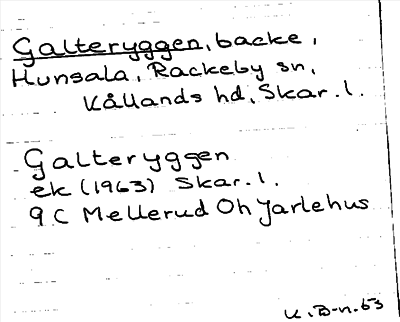 Galteryggen, backe,
Hunsala, Rackeby sn,
Kållands hd, Skar. l.
Galteryggen
ek (1963) Skar. l.
9 C Mellerud Oh Jarlehus
K. B-n. 63